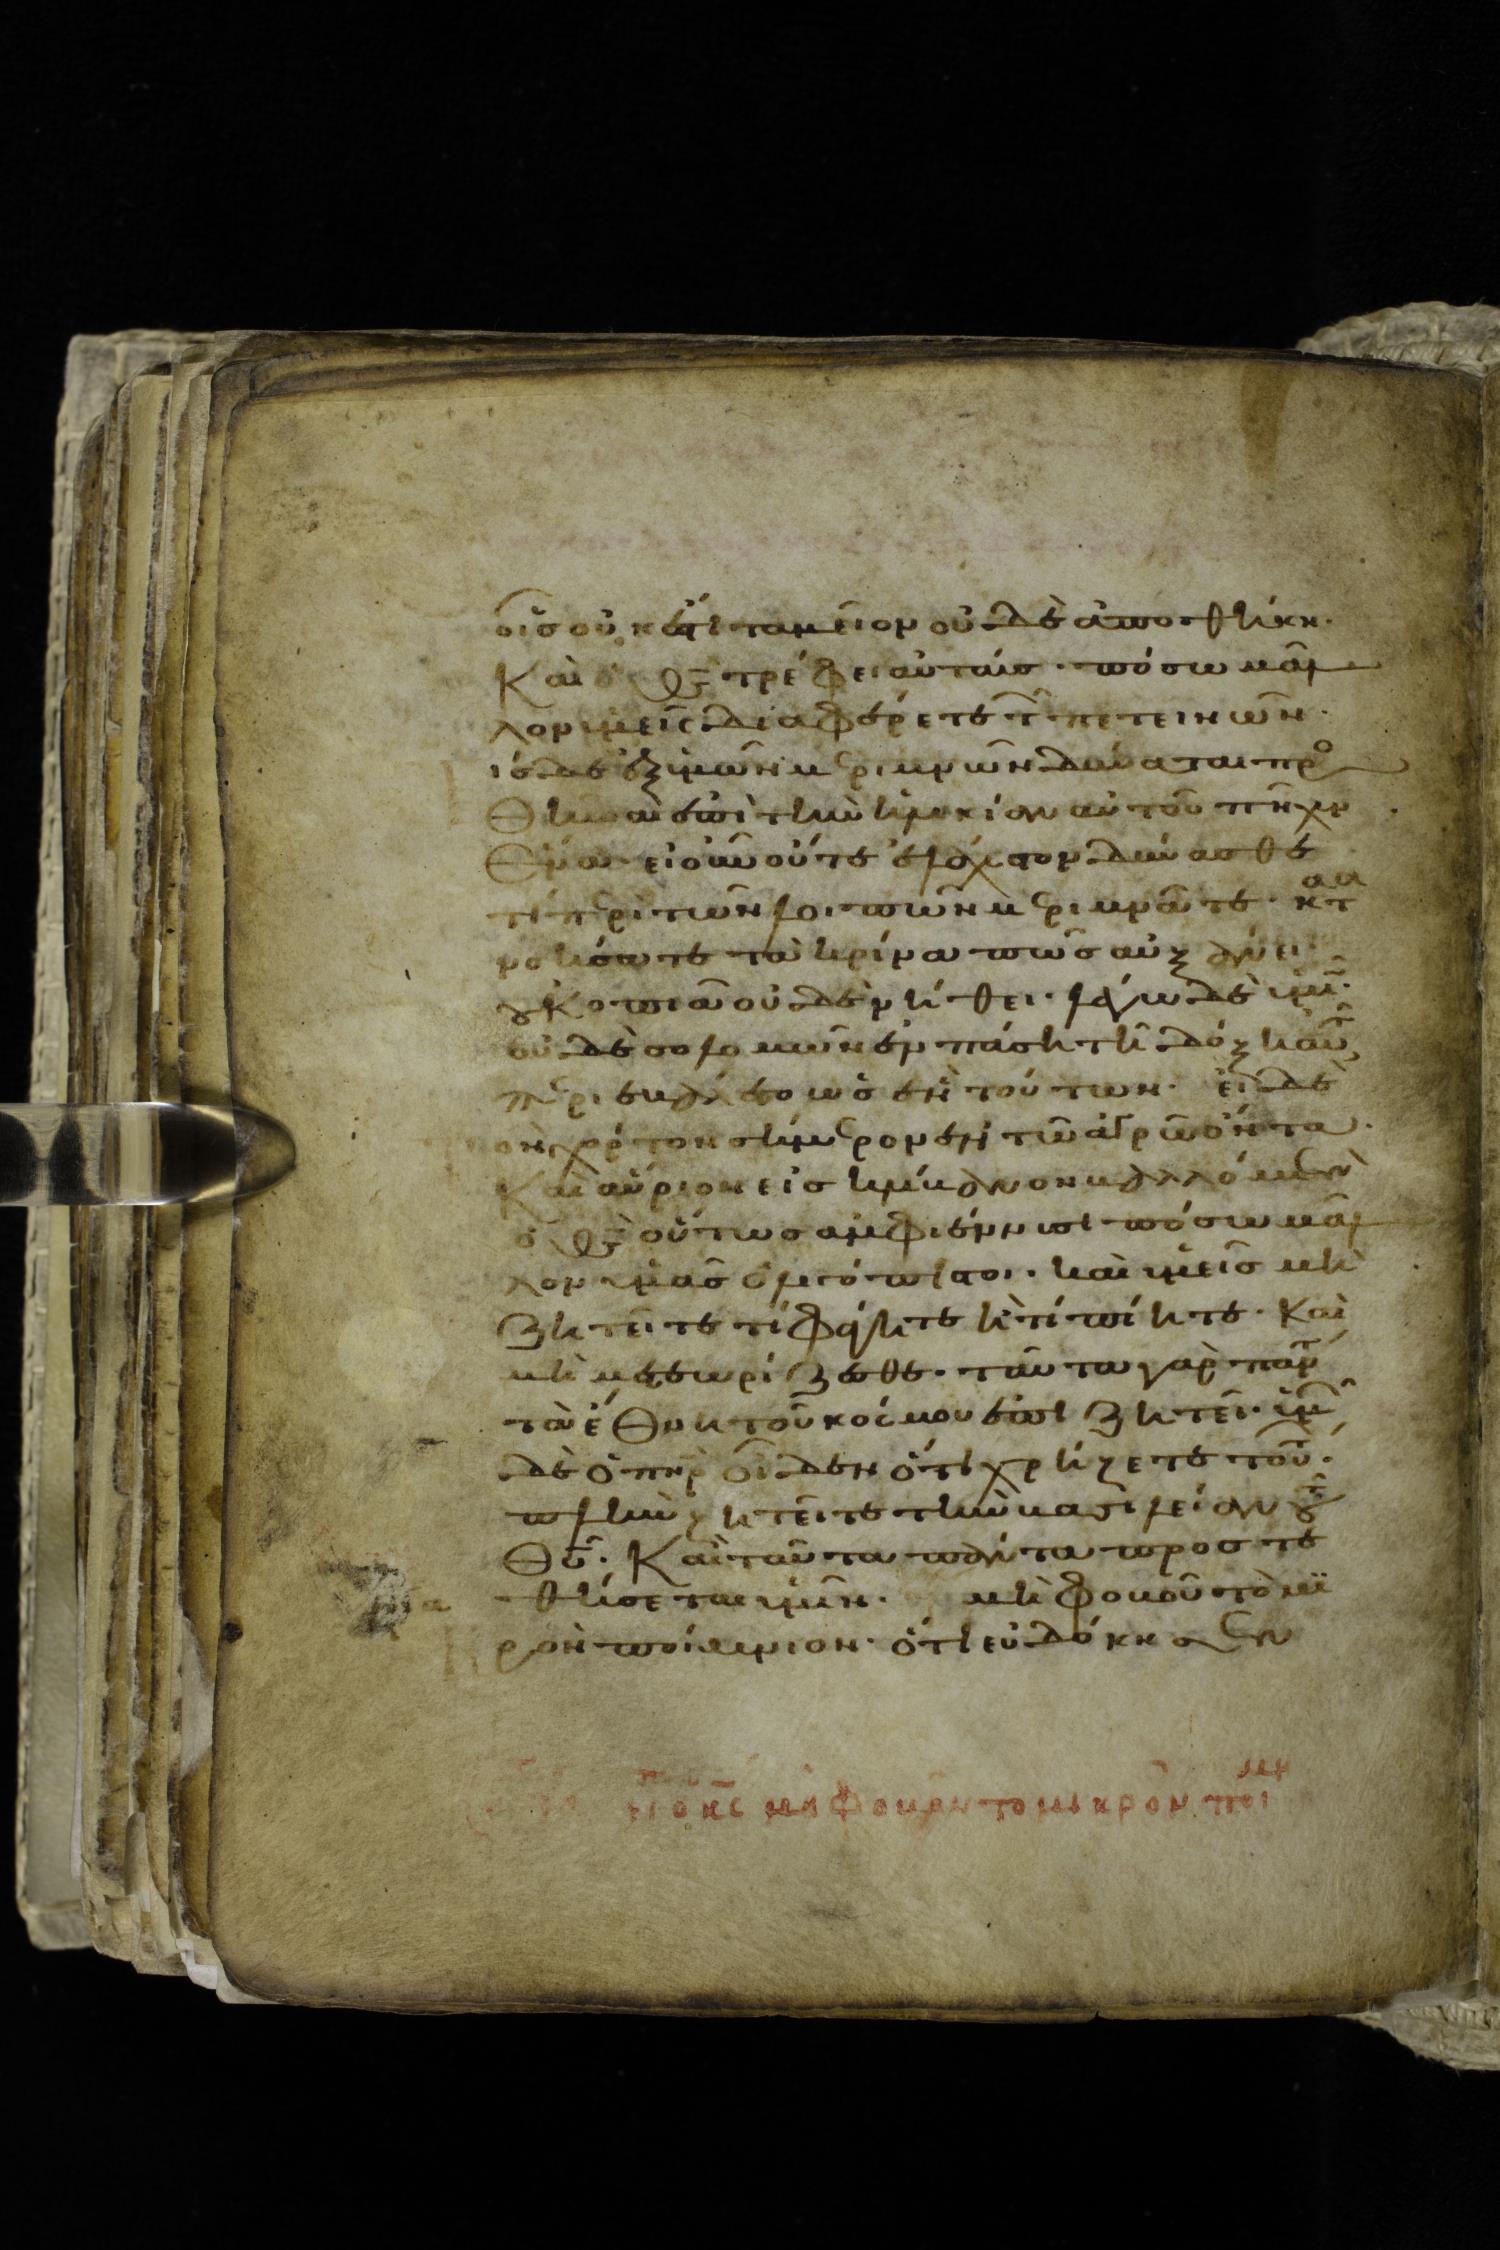 οἷσ οὐκ ἔστι ταμεῖον οὐδὲ ἀποθήκη·
Καὶ ὁ θσ τρέφει αὐταίσ· πόσω μᾶλ
λον ὑμεῖσ διαφέρετε τ πετεινῶν·
τίσ δὲ ἐξ ὑμῶν μεριμνῶν δύναται προσ
θῆναι ἐπὶ τὴν ἡλικίαν αὐτοῦ πῆχυν
ἕνα· εἰ οὖν οὔτε ἐλάχιστον δύνασθε
τί περὶ τῶν λοιπῶν μεριμνᾶτε· κατα
νοήσατε τὰ κρίνα πῶσ αὐξάνει·
οὐ κοπιᾶ οὐδὲ νήθει· λέγω δὲ ὑμῖν·
οὐδὲ σολομῶν ἐν πάση τῆ δόξη αὐτοῦ
περιεβάλετο ὡσ ἓν τούτων· εἰ δὲ
τὸν χόρτον σήμερον ἐν τῶ ἀγρῶ ὄντα·
Καὶ αὔριον εἰσ κλίβανον βαλλόμενον
ὁ θσ οὕτωσ ἀμφιέννυσι πόσω μᾶλ
λον ὑμᾶσ ὀλιγόπιστοι· καὶ ὑμεῖσ μὴ
ζητεῖτε τί φάγητε ἢ τί πίητε· Καὶ
μὴ μετεωρίζεσθε· ταῦτα γὰρ πάν
τα τὰ ἔθνη τοῦ κόσμου ἐπιζητεῖ· ὑμῶν
δὲ ὁ πηρ οἶδεν ὅτι χρήζετε τούτων·
πλὴν ζητεῖτε τὴν βασιλείαν τοῦ
θυ· Καὶ ταῦτα πάντα προστε
θήσεται ὑμῖν· μὴ φοβοῦ τὸ μι
κρὸν ποίμνιον· ὅτι εὐδόκησεν
εἶπεν ὁ κσ μὴ φοβοῦ τὸ μικρὸν ποίμν